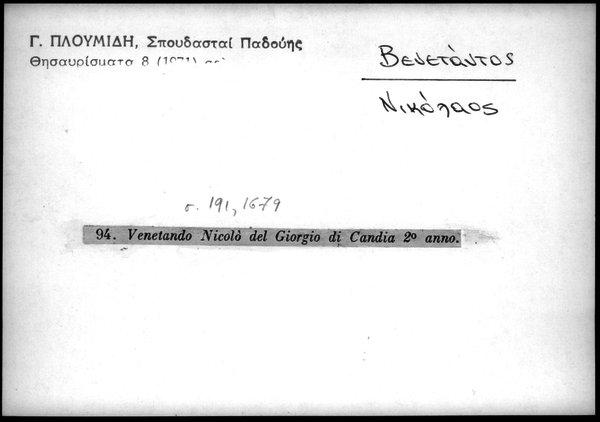 Γ. ΠΛΟΥΜΙΔΗ, Σπουδασταί Παδούης
Θησαυρίσματα 8 (1971)
Βενετάντος
Νικόλαος
σ. 191, 1679
94. Venetando Nicolò del Giorgio di Candia 2º anno.